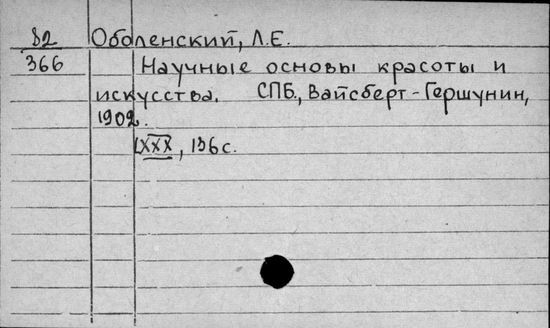 82 Оболенский, Л.Е.
366 Научные основы красоты и
искусства. СПБ., Вайсберг-Гершунин,
1902.
LXXX, 136с.